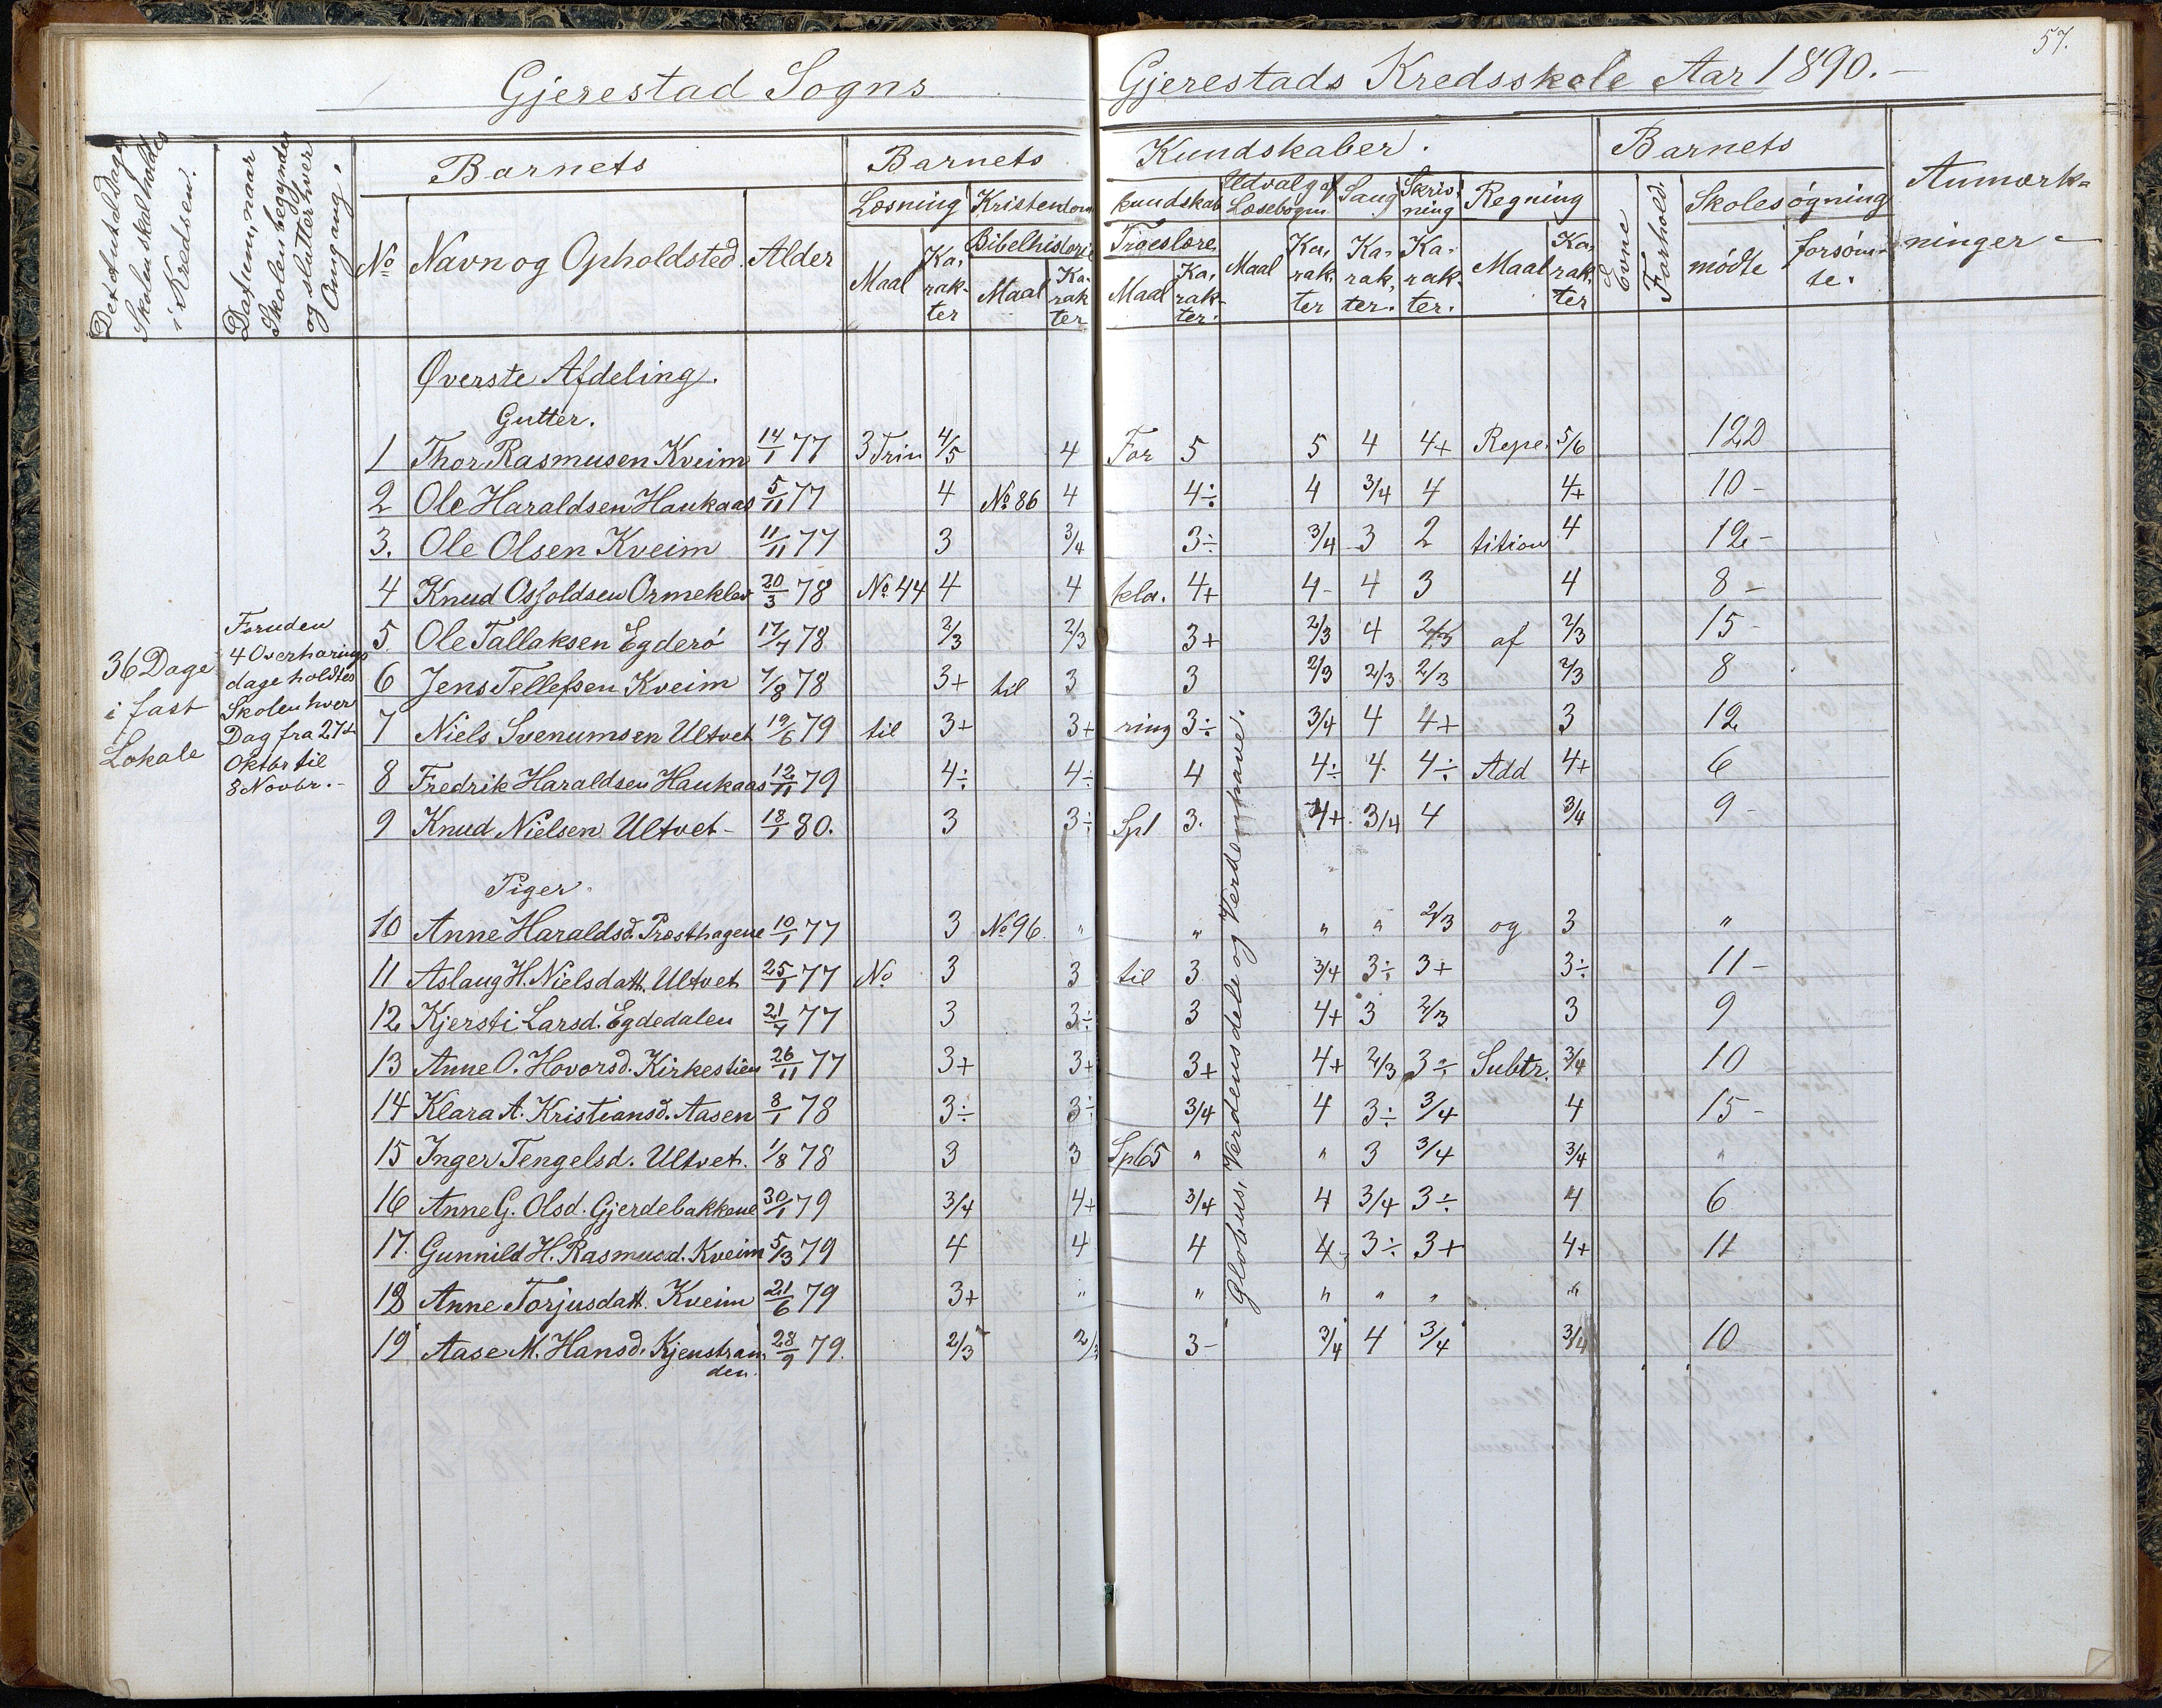 57.
Gjerestad Sogns Gjerestads Kredsskole Aar 1890.
Det Antal Dage Skolen skal holdes i Kredsen.
Datum, naar Skolen begynder og slutter hver Omgang.
Barnets
Barnets Kundskaber.
Barnets
Anmærkninger
No Navn og Opholdsted. Alder
Læsning Kristendomskundskab Udvalg af Læsebogen Sang Skrivning Regning Evne Forhold. Skolesøgning
Bibelhistorie Troeslære
Maal Karakter Maal Karakter Maal Karakter. Maal Karakter Karakter. Karakter. Maal Karakter mødte forsømte.
Øverste Afdeling.
Gutter.
1 Thor Rasmusen Kveim 14/1 77 3 Trin 4/5 4 For 5 5 4 4+ Repe. 5/6 12 D
2 Ole Haraldsen Haukaas 5/11 77 4 No 86 4 4÷ 4 3/4 4 4+ 10 -
3. Ole Olsen Kveim 11/11 77 3 3/4 3÷ 3/4 3 2 tition 4 12 -
4 Knud Osfoldsen Ormeklev 20/3 78 No 44 4 4 kla. 4+ 4- 4 3 4 8 -
5. Ole Tallaksen Egderö 17/7 78 2/3 2/3 3+ 2/3 4 2/3 af 2/3 15 -
6 Jens Tellefsen Kveim 7/8 78 3+ til 3 3 2/3 2/3 2/3 2/3 8
7 Niels Svenumsen Ultvet 19/6 79 til 3+ 3+ ring 3÷ 3/4 4 4+ 3 12
8 Fredrik Haraldsen Haukaas 12/11 79 4÷ 4÷ 4 4÷ 4 4÷ Add 4+ 6
9 Knud Nielsen Ultvet - 18/1 80. 3 3÷ Spl 3. 4+ 3/4 4 3/4 9 -
36 Dage
i fast
Lokale
Foruden
4 Overhørings
dage holdtes
Skolen hver
Dag fra 27de
Oktbr til
8 Novbr. -
Globus, Verdensdele og Verdenshave.
Piger.
10 Anne Haraldsd. Præsthagene 10/1 77 3 No 96. " " " " 2/3 og 3 "
11 Aslaug H. Nielsdatt. Ultvet 25/1 77 No 3 3 til 3 3/4 3÷ 3+ 3÷ 11 -
12 Kjersti Larsd. Egdedalen 21/7 77 3 3÷ 3 4+ 3 2/3 3 9
13 Anne O. Hovorsd. Kirkestien 26/11 77 3+ 3+ 3+ 4+ 2/3 3÷ Subtr. 3/4 10
14 Klara A. Kristiansd. Aasen 8/1 78 3÷ 3÷ 3/4 4 3÷ 3/4 4 15 -
15 Inger Tengelsd. Ultvet. 1/8 78 3 3 Spl 65 " " 3 3/4 3/4 "
16 Anne G. Olsd. Gjerdebakkene 30/1 79 3/4 4+ 3/4 4 3/4 3÷ 4 6
17. Gunnild H. Rasmusd. Kveim 5/3 79 4 4 4 4 3÷ 3+ 4+ 11
18 Anne Torjusdatt. Kveim 21/6 79 3+ " " " " " "
19 Aase M. Hansd. Kjenstranden. 28/9 79. 2/3 2/3 3- 3/4 4 3/4 3/4 10